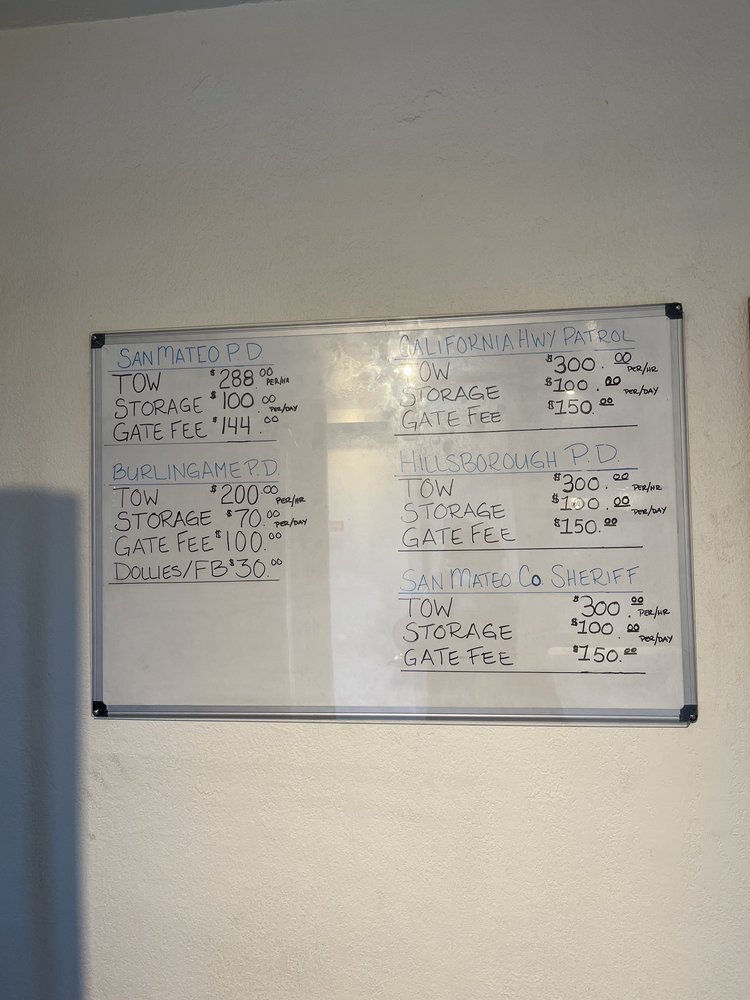 SAN MATEO P.D.
TOW $288.00 PER/HR
STORAGE $100.00 PER/DAY
GATE FEE $144.00
BURLINGAME P.D.
TOW $200.00 PER/HR
STORAGE $70.00 PER/DAY
GATE FEE $100.00
DOLLIES/FB $30.00
CALIFORNIA HWY PATROL
TOW $300.00 PER/HR
STORAGE $100.00 PER/DAY
GATE FEE $150.00
HILLSBOROUGH P.D.
TOW $300.00 PER/HR
STORAGE $100.00 PER/DAY
GATE FEE $150.00
SAN MATEO CO SHERIFF
TOW $300.00 PER/HR
STORAGE $100.00 PER/DAY
GATE FEE $150.00